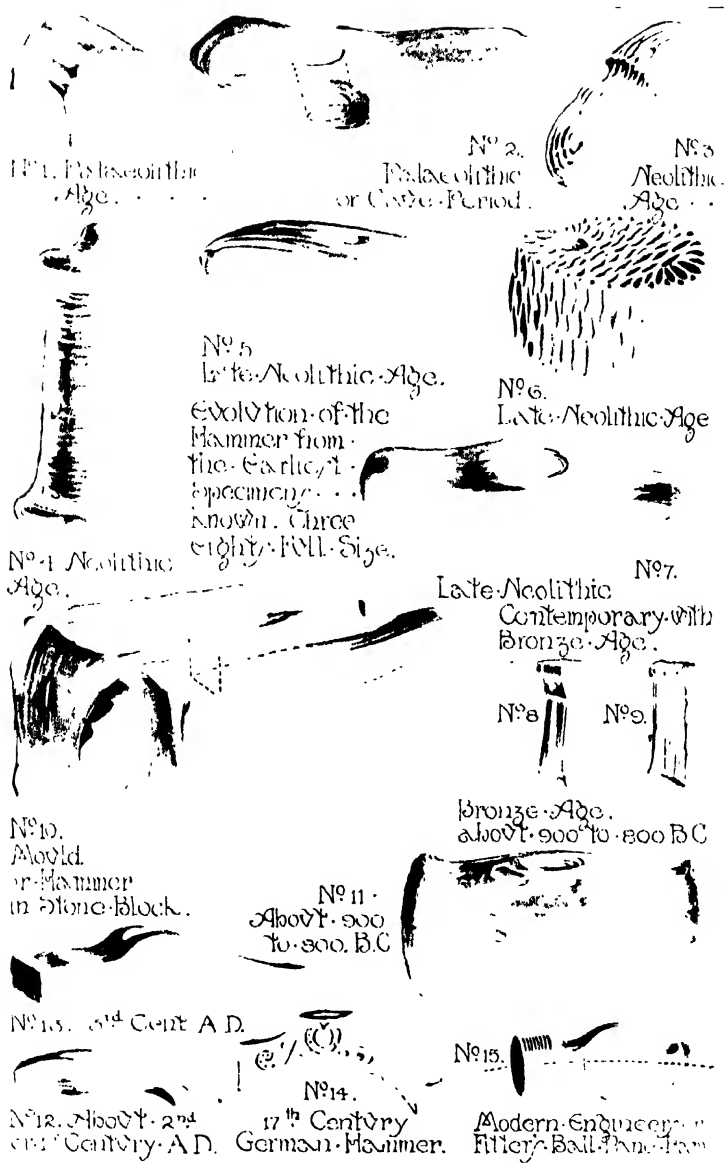 Nº 1. Palaeolithic
Age. . . . .
Nº 2.
Palaeolithic
or Cave·Period.
Nº 3
Neolithic
Age · · ·
Nº 5
Late·Neolithic·Age.
Evolvtion·of·the
Hammer from·
the·Earliest·
Specimens · · ·
known. Three
eighths·Fvll·Size.
Nº 6.
Late·Neolithic·Age
Nº 4 Neolithic
Age.
Nº 7.
Late·Neolithic
Contemporary·with
Bronze·Age.
Nº 8
Nº 9.
Bronze·Age.
abovt·900 to·800 B C
Nº 10.
Movld
Hammer
in Stone·Block.
Nº 11·
Abovt·900
to·800. B.C
Nº 13. 3rd Cent A D.
Nº 12. Abovt·2nd
Centvry·A D.
Nº 14.
17th Centvry
German·Hammer.
Nº 15.
Modern·Engineer
Fitter's·Ball·Pane